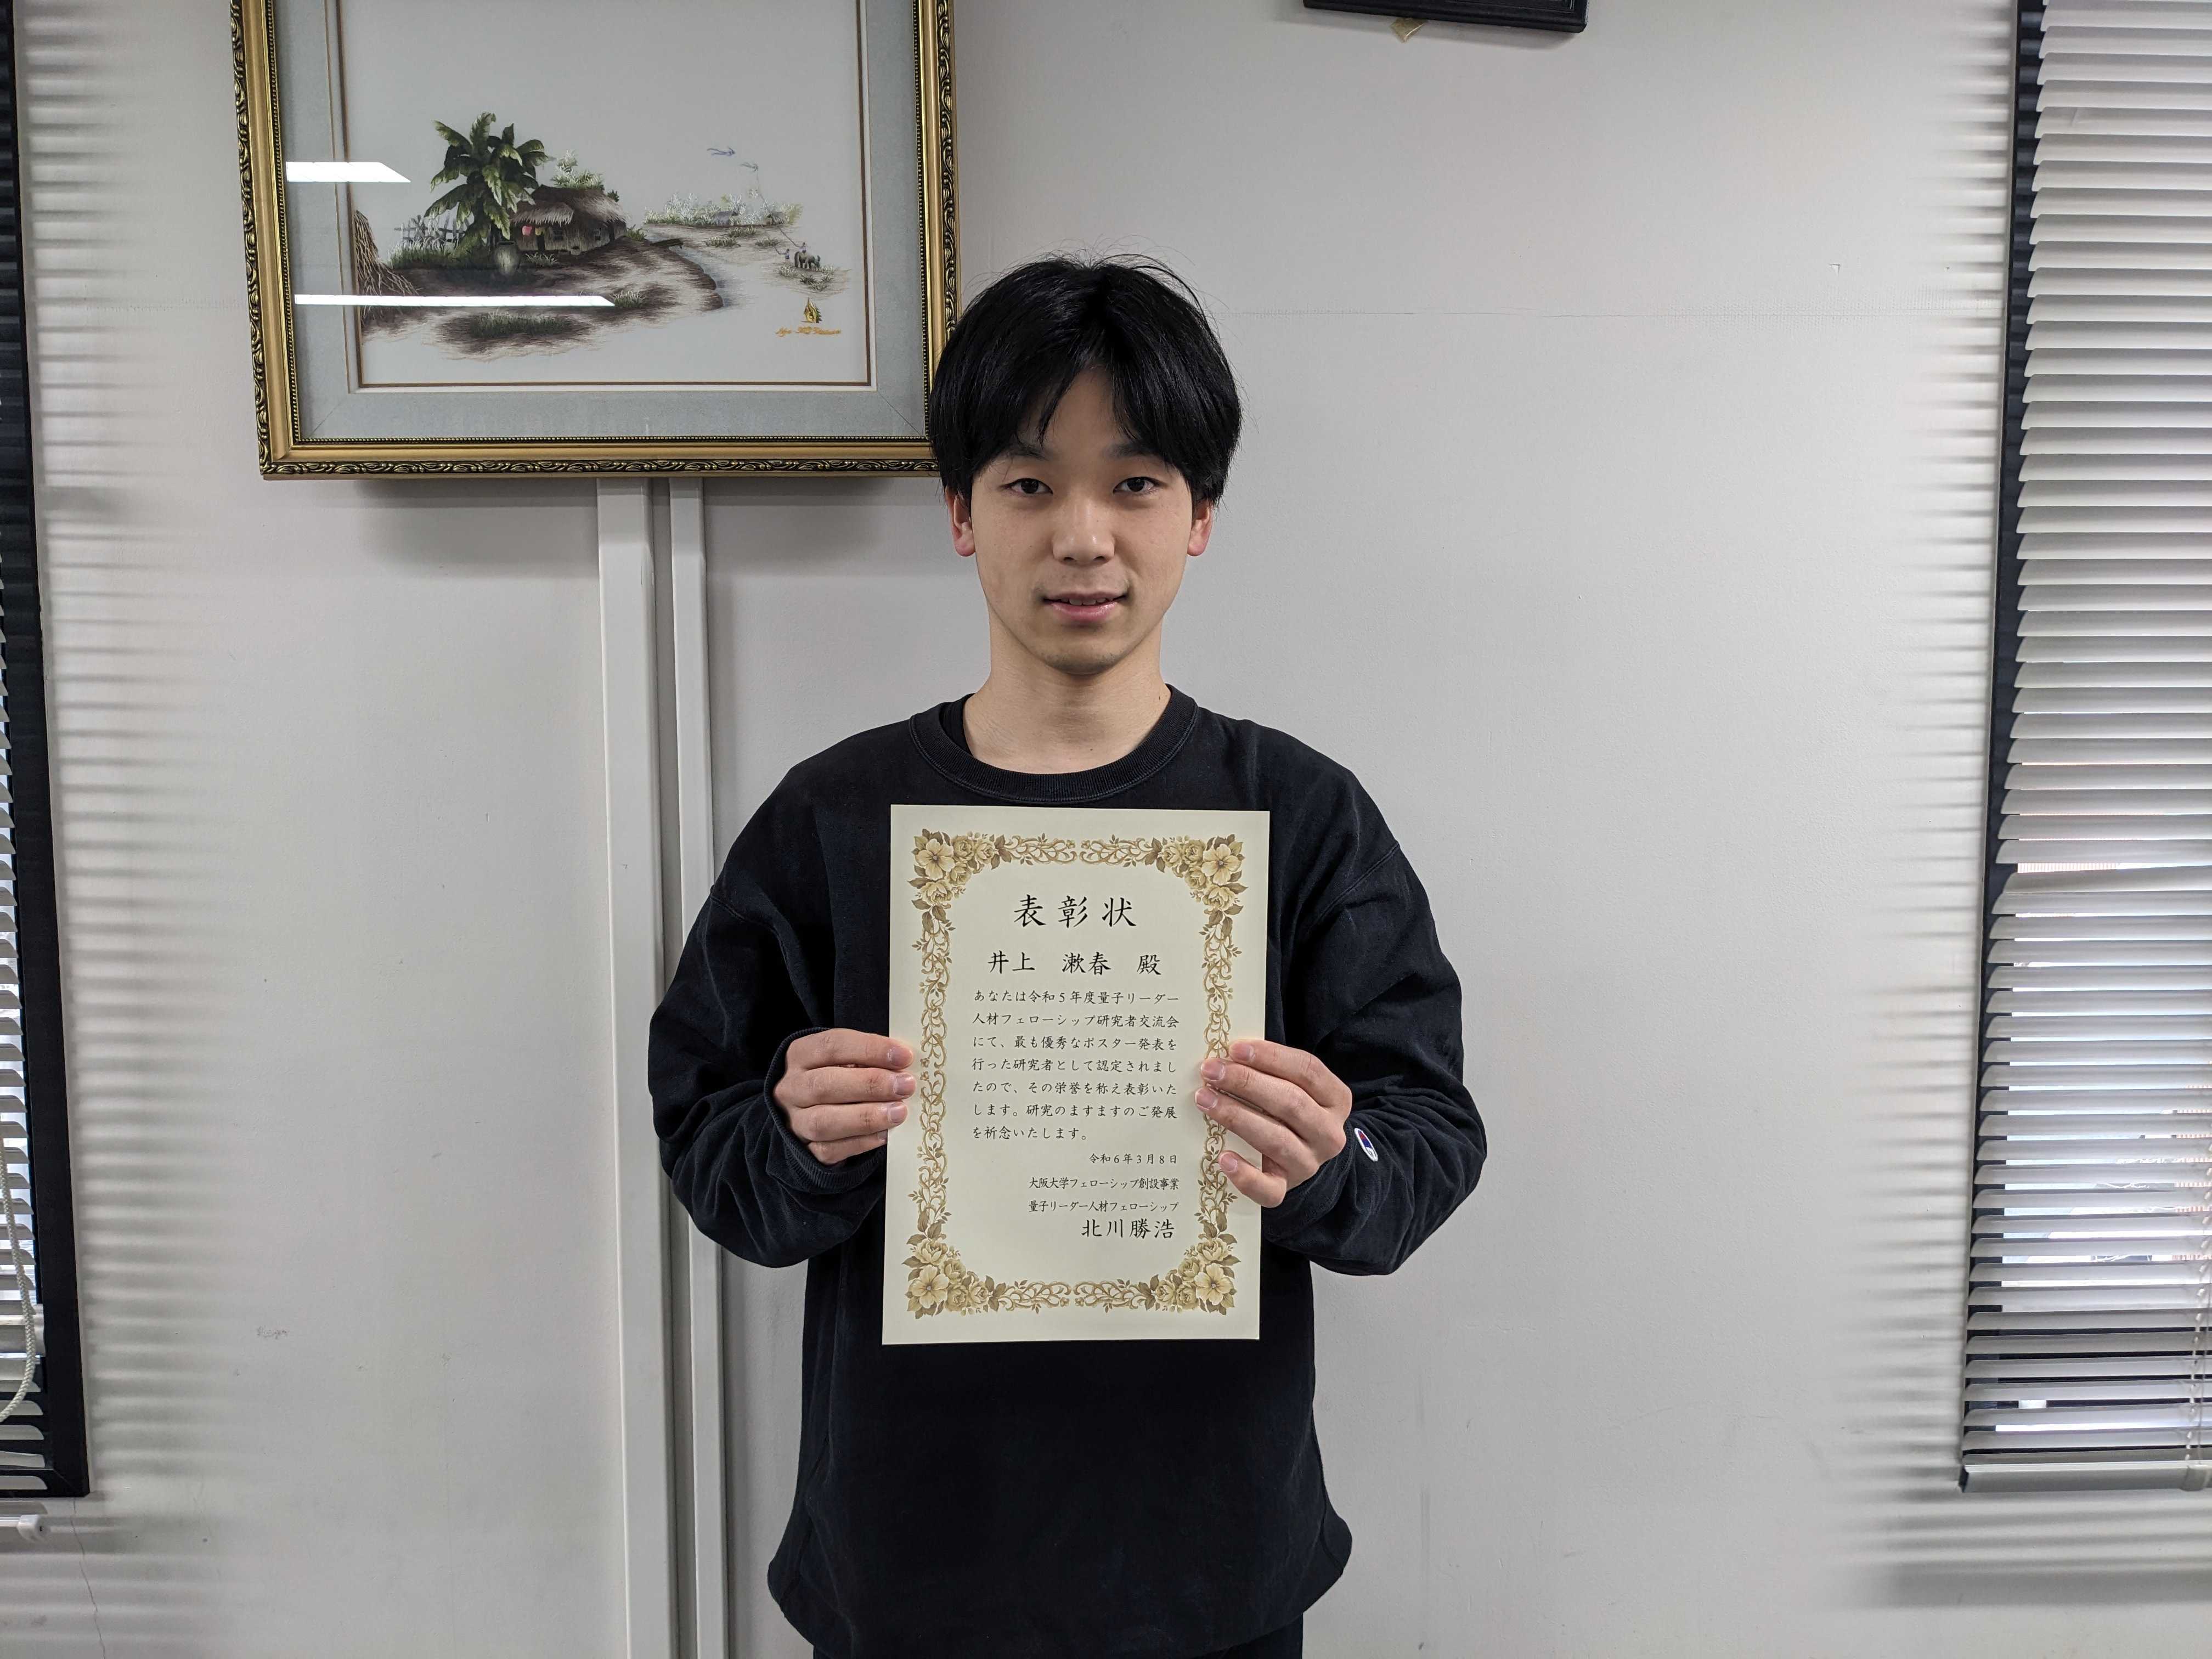 表彰状
井上 漱春 殿
あなたは令和5年度量子リーダー
人材フェローシップ研究者交流会
にて、最も優秀なポスター発表を
行った研究者として認定されまし
たので、その栄誉を称え表彰いた
します。研究のますますのご発展
を祈念いたします。
令和6年3月8日
大阪大学フェローシップ創設事業
量子リーダー人材フェローシップ
北川勝浩